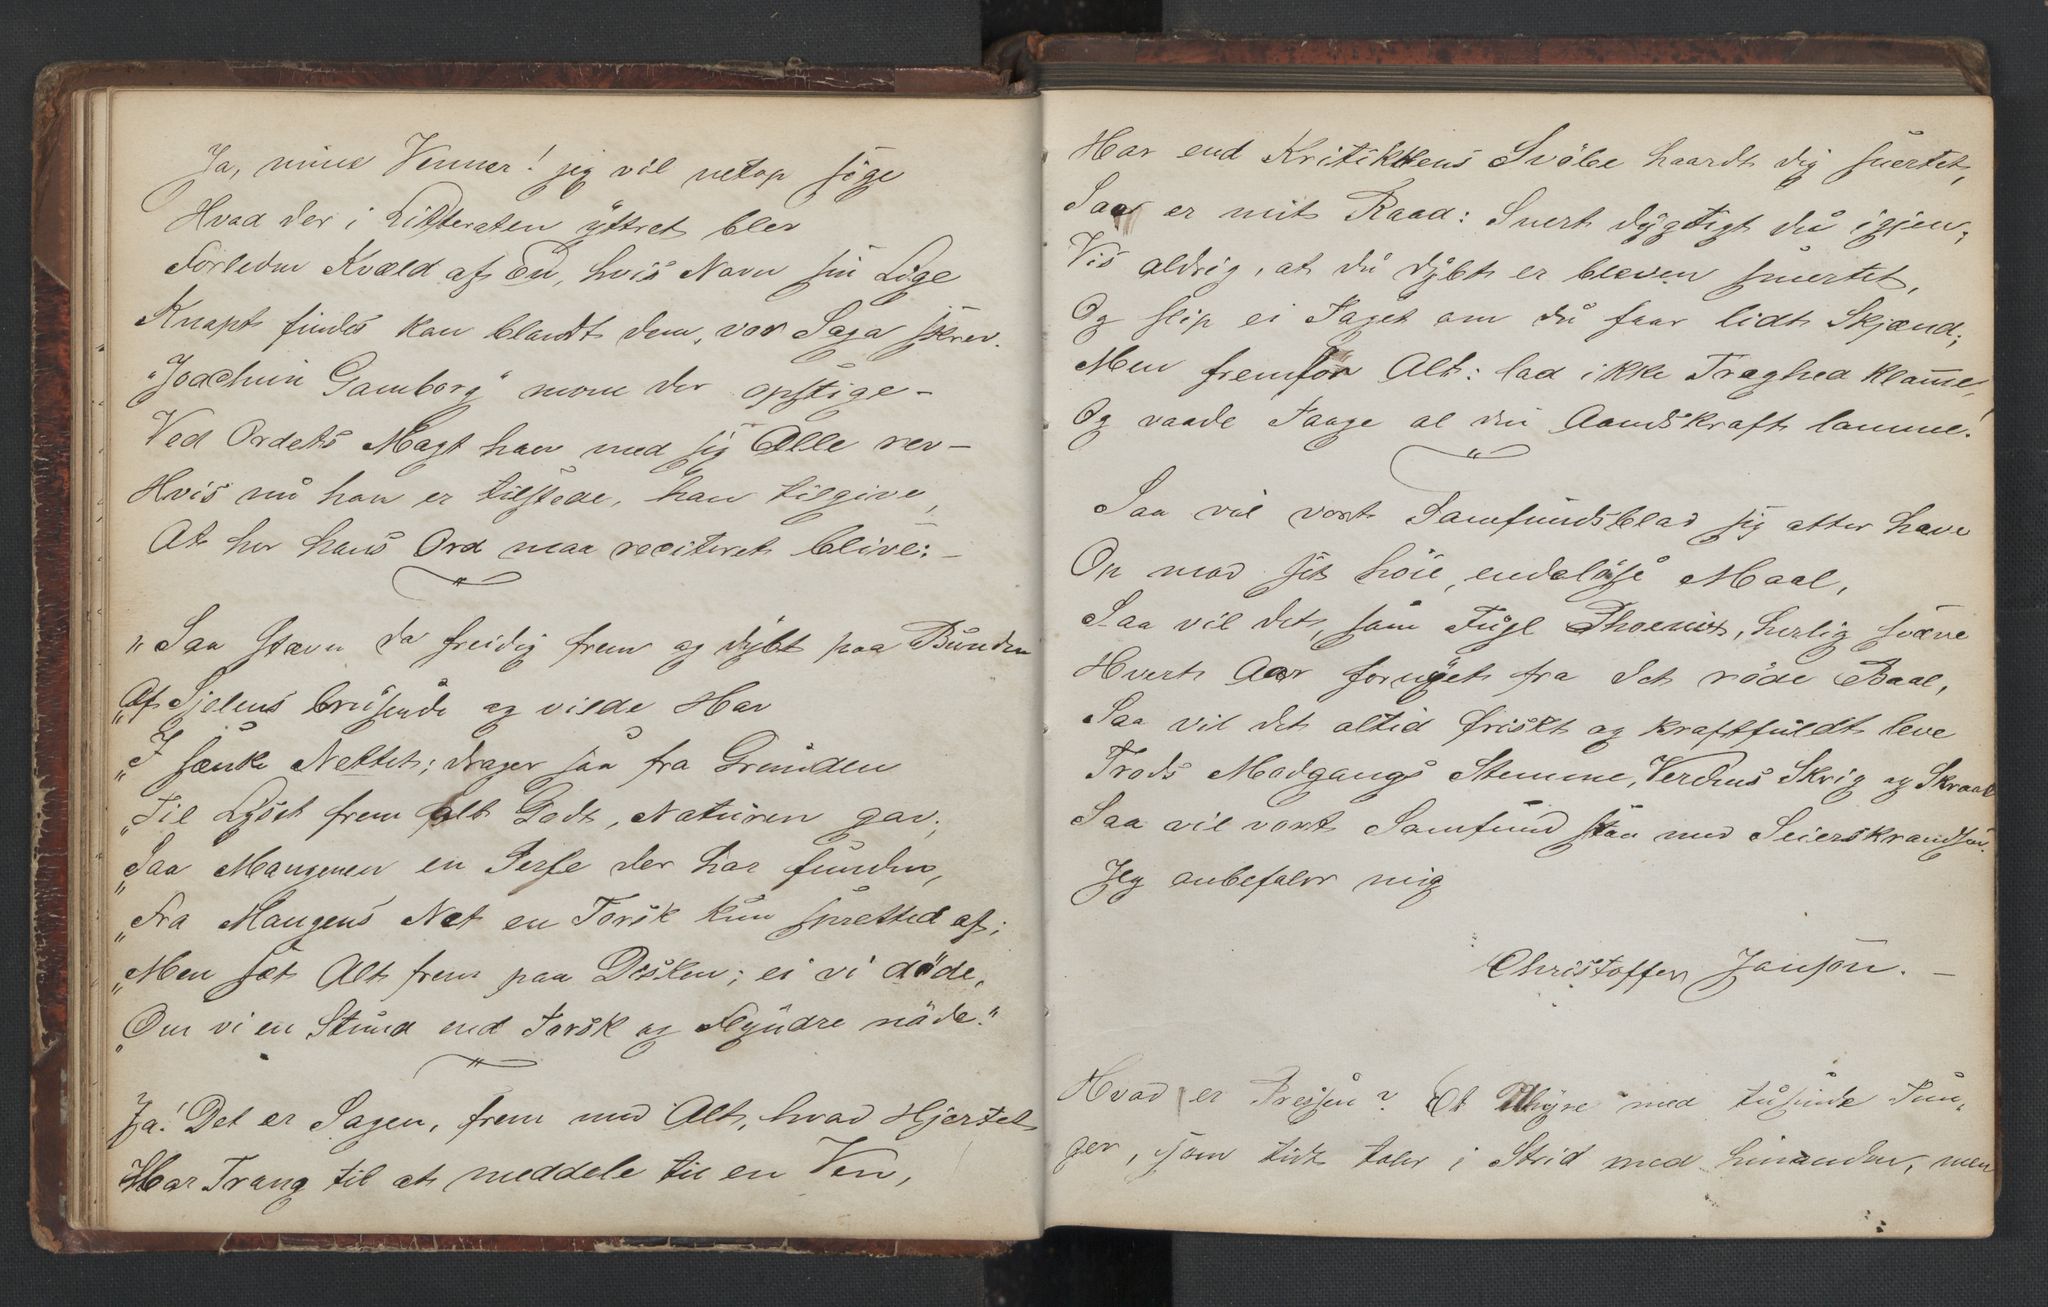 Ja, mine Venner! jeg vil netop søge
Hvad der i Litteraten yttret blev
Forleden Kvæld af En, hvis Navn sin Lige
Knapt findes kan blandt dem, vor Saga skrev.
"Joachim Gamborg" mon der opstige –
Ved Ordets Magt han med sig Alle rev –
Hvis nu han er tilstede, han tilgive,
At her hans Ord maa reciteret blive: –
„Saa stævn da freidig frem og dybt paa Bunden
„Af Sjelens brusende og vilde Hav
„I sænke Nettet; drager saa fra Grunden
„Til Lyset frem alt Godt, Naturen gav;
„Saa Mangenen en Perle der har funden,
„Fra Mangens Net en Torsk kun spretted af;
„Men sæt Alt frem paa Disken; ei vi døde,
„Om vi en Stund end Torsk og Flyndre nøde."
Ja! Det er Sagen, frem med Alt, hvad Hjertet
Har Trang til at meddele til en Ven,
Har end Kritikkens Svøbe haardt dig snertet,
Saa er mit Raad: Snert dygtigt du igjen;
Vis aldrig, at du dybt er bleven smertet,
Og slip ei Taget om du faar lidt Skjænd;
Men fremfor Alt: lad ikke Træghed klamme,
Og vaade Taage al din Aandskraft lamme!
Saa vil vort Samfundsblad sig atter hæve
Op mod sit høie, endeløse Maal,
Saa vil det, som Fugl Phoenix, herlig svæve
Hvert Aar fornyet fra det røde Baal,
Saa vil det altid friskt og kraftfuldt leve
Trods Modgangs Stemme, Verdens Skrig og Skraal
Saa vil vort Samfund staa med Seierskrandsen.
Jeg anbefaler mig
Christoffer Janson. –
Hvad er Pressen? Et Uhyre med tusinde Tun„
ger, som tidt taler i Strid med hinanden, men